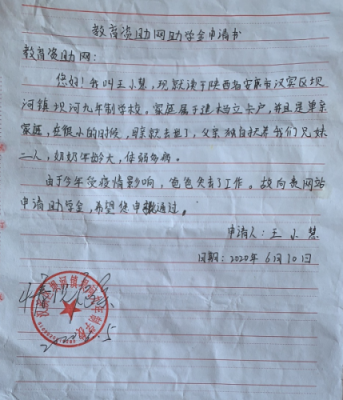 教育资助网助学金申请书
教育资助网：
您好！我叫王小慧，现就读于陕西省安康市汉滨区坝
河镇坝河九年制学校。家庭属于建档立卡户，并且是单亲
家庭，在很小的时候，母亲就去世了，父亲独自抚养我们兄妹
二人，奶奶年龄大，体弱多病。
由于今年受疫情影响，爸爸失去了工作。故向贵网站
申请助学金，希望使申请通过。
申请人：王小慧
日期：2020年6月10日